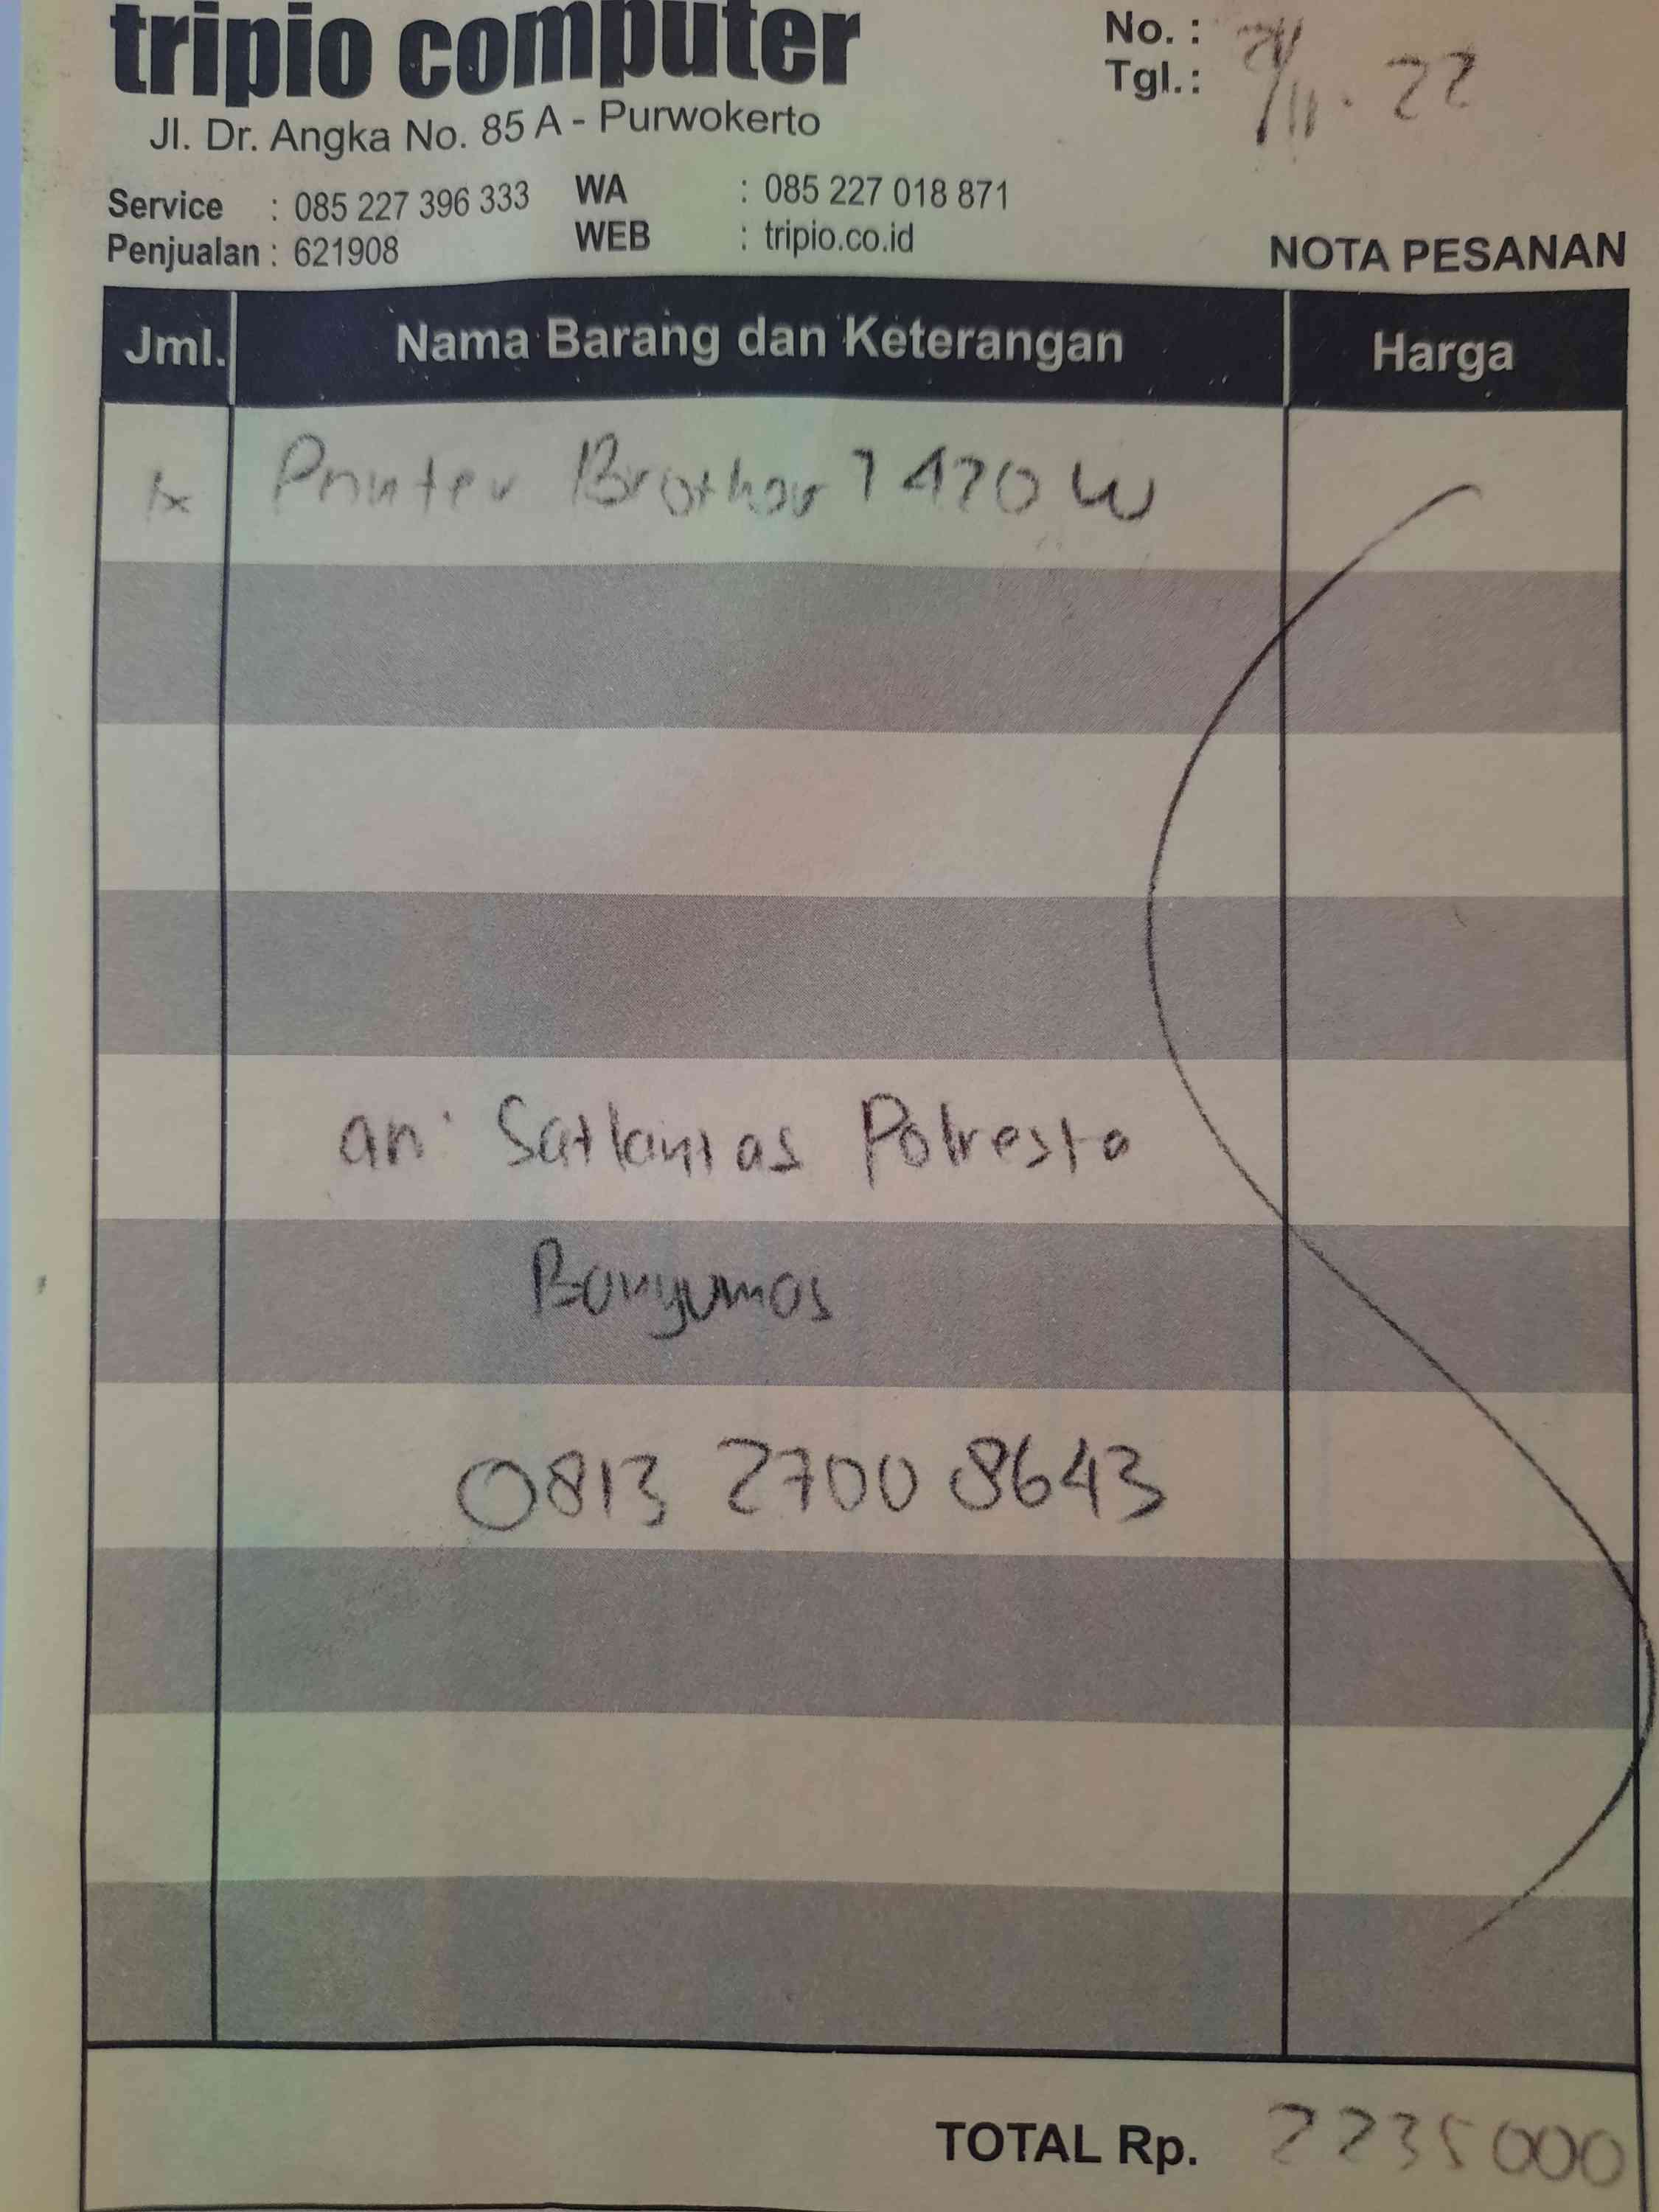 tripio computer
Jl. Dr. Angka No. 85 A - Purwokerto
Service : 085 227 396 333 WA : 085 227 018 871
Penjualan : 621908 WEB : tripio.co.id
No. :
Tgl. : /11 . 22
NOTA PESANAN
Jml. Nama Barang dan Keterangan Harga
1x Printer Brother T420W
an: Satlantas Polresta
Banyumas
0813 2700 8643
TOTAL Rp. 2235000